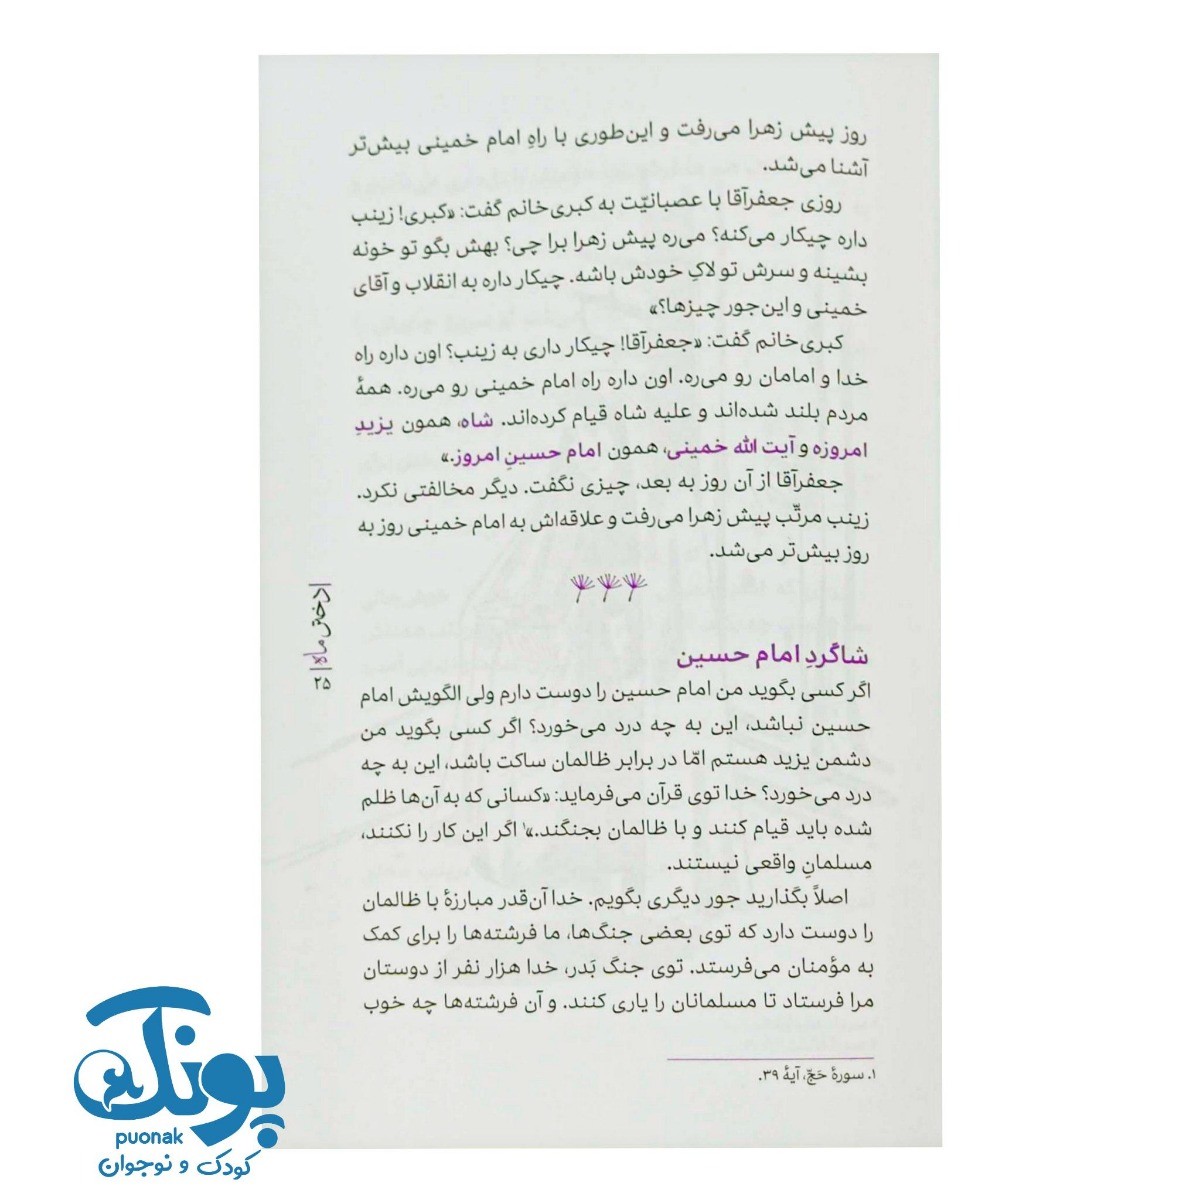 روز پیش زهرا می‌رفت و این‌طوری با راهِ امام خمینی بیش‌تر
آشنا می‌شد.
روزی جعفرآقا با عصبانیّت به کبری‌خانم گفت: «کبری! زینب
داره چیکار می‌کنه؟ می‌ره پیش زهرا برا چی؟ بهش بگو تو خونه
بشینه و سرش تو لاکِ خودش باشه. چیکار داره به انقلاب و آقای
خمینی و این‌جور چیزها؟»
کبری‌خانم گفت: «جعفرآقا! چیکار داری به زینب؟ اون داره راه
خدا و امامان رو می‌ره. اون داره راه امام خمینی رو می‌ره. همهٔ
مردم بلند شده‌اند و علیه شاه قیام کرده‌اند. شاه، همون یزیدِ
امروزه و آیت الله خمینی، همون امام حسینِ امروز.»
جعفرآقا از آن روز به بعد، چیزی نگفت. دیگر مخالفتی نکرد.
زینب مرتّب پیش زهرا می‌رفت و علاقه‌اش به امام خمینی روز به
روز بیش‌تر می‌شد.
شاگردِ امام حسین
اگر کسی بگوید من امام حسین را دوست دارم ولی الگویش امام
حسین نباشد، این به چه درد می‌خورد؟ اگر کسی بگوید من
دشمن یزید هستم امّا در برابر ظالمان ساکت باشد، این به چه
درد می‌خورد؟ خدا توی قرآن می‌فرماید: «کسانی که به آن‌ها ظلم
شده باید قیام کنند و با ظالمان بجنگند.»۱ اگر این کار را نکنند،
مسلمانِ واقعی نیستند.
اصلاً بگذارید جور دیگری بگویم. خدا آن‌قدر مبارزهٔ با ظالمان
را دوست دارد که توی بعضی جنگ‌ها، ما فرشته‌ها را برای کمک
به مؤمنان می‌فرستد. توی جنگ بَدر، خدا هزار نفر از دوستان
مرا فرستاد تا مسلمانان را یاری کنند. و آن فرشته‌ها چه خوب
۱. سورهٔ حَجّ، آیهٔ ۳۹.
| دختر ماه | ۲۵
پونک
puonak
کودک و نوجوان